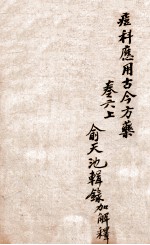 痧科應用古今方藥
卷六上
俞天池輯錄加解釋